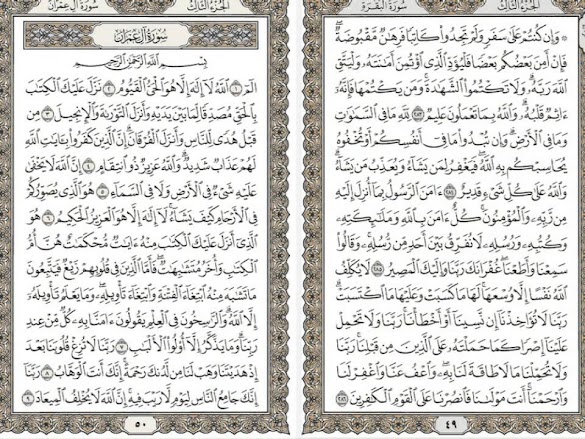 الجزء الثالث سورة البقرة
۞ وَإِن كُنتُمْ عَلَىٰ سَفَرٍ وَلَمْ تَجِدُوا۟ كَاتِبًا فَرِهَٰنٌ مَّقْبُوضَةٌ ۖ
فَإِنْ أَمِنَ بَعْضُكُم بَعْضًا فَلْيُؤَدِّ ٱلَّذِى ٱؤْتُمِنَ أَمَٰنَتَهُۥ وَلْيَتَّقِ
ٱللَّهَ رَبَّهُۥ ۗ وَلَا تَكْتُمُوا۟ ٱلشَّهَٰدَةَ ۚ وَمَن يَكْتُمْهَا فَإِنَّهُۥٓ
ءَاثِمٌ قَلْبُهُۥ ۗ وَٱللَّهُ بِمَا تَعْمَلُونَ عَلِيمٌ ٢٨٣ لِّلَّهِ مَا فِى ٱلسَّمَٰوَٰتِ
وَمَا فِى ٱلْأَرْضِ ۗ وَإِن تُبْدُوا۟ مَا فِىٓ أَنفُسِكُمْ أَوْ تُخْفُوهُ
يُحَاسِبْكُم بِهِ ٱللَّهُ ۖ فَيَغْفِرُ لِمَن يَشَآءُ وَيُعَذِّبُ مَن يَشَآءُ ۗ
وَٱللَّهُ عَلَىٰ كُلِّ شَىْءٍ قَدِيرٌ ٢٨٤ ءَامَنَ ٱلرَّسُولُ بِمَآ أُنزِلَ إِلَيْهِ
مِن رَّبِّهِۦ وَٱلْمُؤْمِنُونَ ۚ كُلٌّ ءَامَنَ بِٱللَّهِ وَمَلَٰٓئِكَتِهِۦ
وَكُتُبِهِۦ وَرُسُلِهِۦ لَا نُفَرِّقُ بَيْنَ أَحَدٍ مِّن رُّسُلِهِۦ ۚ وَقَالُوا۟
سَمِعْنَا وَأَطَعْنَا ۖ غُفْرَانَكَ رَبَّنَا وَإِلَيْكَ ٱلْمَصِيرُ ٢٨٥ لَا يُكَلِّفُ
ٱللَّهُ نَفْسًا إِلَّا وُسْعَهَا ۚ لَهَا مَا كَسَبَتْ وَعَلَيْهَا مَا ٱكْتَسَبَتْ ۗ
رَبَّنَا لَا تُؤَاخِذْنَآ إِن نَّسِينَآ أَوْ أَخْطَأْنَا ۚ رَبَّنَا وَلَا تَحْمِلْ
عَلَيْنَآ إِصْرًا كَمَا حَمَلْتَهُۥ عَلَى ٱلَّذِينَ مِن قَبْلِنَا ۚ رَبَّنَا
وَلَا تُحَمِّلْنَا مَا لَا طَاقَةَ لَنَا بِهِۦ ۖ وَٱعْفُ عَنَّا وَٱغْفِرْ لَنَا
وَٱرْحَمْنَآ ۚ أَنتَ مَوْلَىٰنَا فَٱنصُرْنَا عَلَى ٱلْقَوْمِ ٱلْكَٰفِرِينَ ٢٨٦
٤٩
الجزء الثالث سورة آل عمران
سورة آل عمران
بِسْمِ ٱللَّهِ ٱلرَّحْمَٰنِ ٱلرَّحِيمِ
الٓمٓ ١ ٱللَّهُ لَآ إِلَٰهَ إِلَّا هُوَ ٱلْحَىُّ ٱلْقَيُّومُ ٢ نَزَّلَ عَلَيْكَ ٱلْكِتَٰبَ
بِٱلْحَقِّ مُصَدِّقًا لِّمَا بَيْنَ يَدَيْهِ وَأَنزَلَ ٱلتَّوْرَىٰةَ وَٱلْإِنجِيلَ ٣ مِن
قَبْلُ هُدًى لِّلنَّاسِ وَأَنزَلَ ٱلْفُرْقَانَ ۗ إِنَّ ٱلَّذِينَ كَفَرُوا۟ بِـَٔايَٰتِ ٱللَّهِ
لَهُمْ عَذَابٌ شَدِيدٌ ۗ وَٱللَّهُ عَزِيزٌ ذُو ٱنتِقَامٍ ٤ إِنَّ ٱللَّهَ لَا يَخْفَىٰ
عَلَيْهِ شَىْءٌ فِى ٱلْأَرْضِ وَلَا فِى ٱلسَّمَآءِ ٥ هُوَ ٱلَّذِى يُصَوِّرُكُمْ
فِى ٱلْأَرْحَامِ كَيْفَ يَشَآءُ ۚ لَآ إِلَٰهَ إِلَّا هُوَ ٱلْعَزِيزُ ٱلْحَكِيمُ ٦ هُوَ
ٱلَّذِىٓ أَنزَلَ عَلَيْكَ ٱلْكِتَٰبَ مِنْهُ ءَايَٰتٌ مُّحْكَمَٰتٌ هُنَّ أُمُّ
ٱلْكِتَٰبِ وَأُخَرُ مُتَشَٰبِهَٰتٌ ۖ فَأَمَّا ٱلَّذِينَ فِى قُلُوبِهِمْ زَيْغٌ فَيَتَّبِعُونَ
مَا تَشَٰبَهَ مِنْهُ ٱبْتِغَآءَ ٱلْفِتْنَةِ وَٱبْتِغَآءَ تَأْوِيلِهِۦ ۗ وَمَا يَعْلَمُ تَأْوِيلَهُۥٓ
إِلَّا ٱللَّهُ ۗ وَٱلرَّٰسِخُونَ فِى ٱلْعِلْمِ يَقُولُونَ ءَامَنَّا بِهِۦ كُلٌّ مِّنْ عِندِ
رَبِّنَا ۗ وَمَا يَذَّكَّرُ إِلَّآ أُو۟لُوا۟ ٱلْأَلْبَٰبِ ٧ رَبَّنَا لَا تُزِغْ قُلُوبَنَا بَعْدَ
إِذْ هَدَيْتَنَا وَهَبْ لَنَا مِن لَّدُنكَ رَحْمَةً ۚ إِنَّكَ أَنتَ ٱلْوَهَّابُ ٨ رَبَّنَآ
إِنَّكَ جَامِعُ ٱلنَّاسِ لِيَوْمٍ لَّا رَيْبَ فِيهِ ۚ إِنَّ ٱللَّهَ لَا يُخْلِفُ ٱلْمِيعَادَ ٩
٥٠